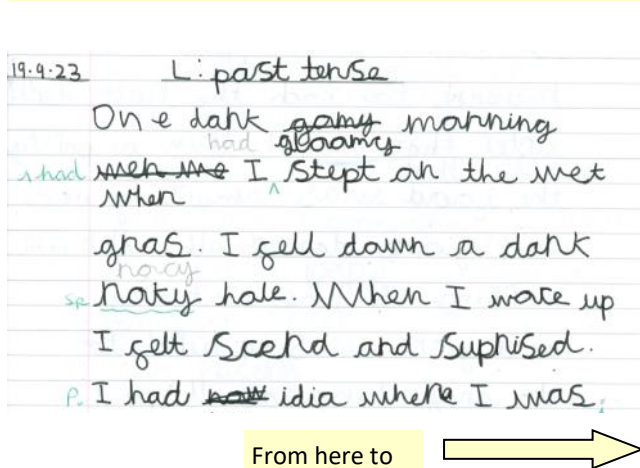 19.9.23 L: past tense
One dark gamy morning
had gloomy
^ had wen me I ^ stept on the wet
when
gras. I fell down a dark
rocy
sp roky hole. When I woce up
I felt scerd and suprised.
P. I had now idia where I was.
From here to